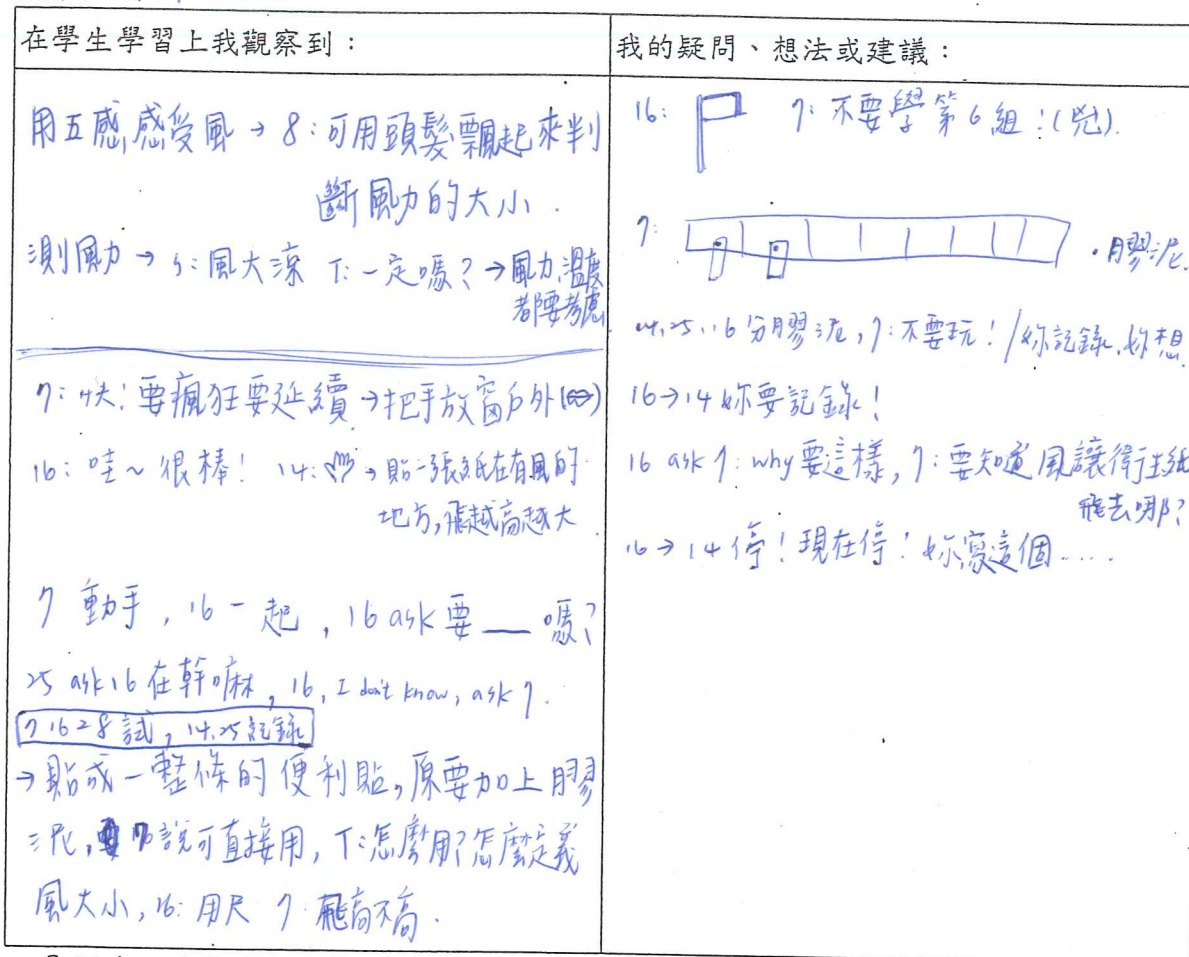 在學生學習上我觀察到：
用五感感受風→8：可用頭髮飄起來判
斷風力的大小.
測風力→S：風大涼 T：一定嗎？→風力、溫度
都要考慮
7：快！要瘋狂要延續→把手放窗戶外(↔)
16：哇～很棒！ 14：→貼一張紙在有風的
地方，飛越高越大
7 動手，16一起，16 ask 要__嗎？
25 ask 16 在幹嘛，16, I don't know, ask 7.
7 16 28 試，14.25 記錄
→貼成一整條的便利貼，原要加上膠
泥，說可直接用，T：怎麼用？怎麼定義
風大小，16：用尺 7：飛高不高.
我的疑問、想法或建議：
16： 7：不要學第6組！(兇).
7： 膠泥.
16 分膠泥，7：不要玩！/妳記錄.妳想
16→14 妳要記錄！
16 ask 7：why 要這樣，7：要知道風讓衛生紙
飛去哪？
16→14 停！現在停！妳寫這個....